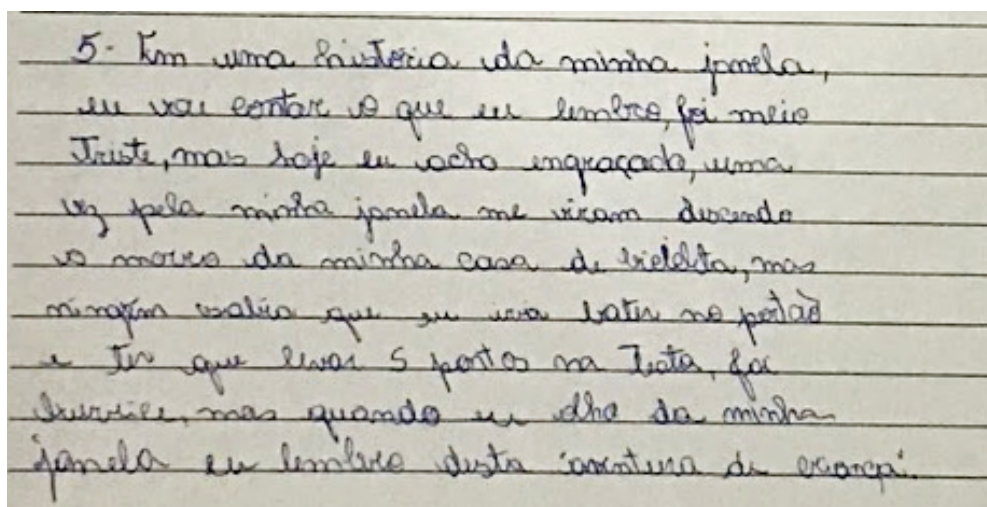 5- Em uma história da minha janela,
eu vou contar o que eu lembro, foi meio
Triste, mas hoje eu acho engraçado, uma
vez pela minha janela me viram descendo
o morro da minha casa de bicicleta, mas
ninguém sabia que eu iria bater no portão
e ter que levar 5 pontos na Testa, foi
burrice, mas quando eu olho da minha
janela eu lembro desta "aventura de criança".